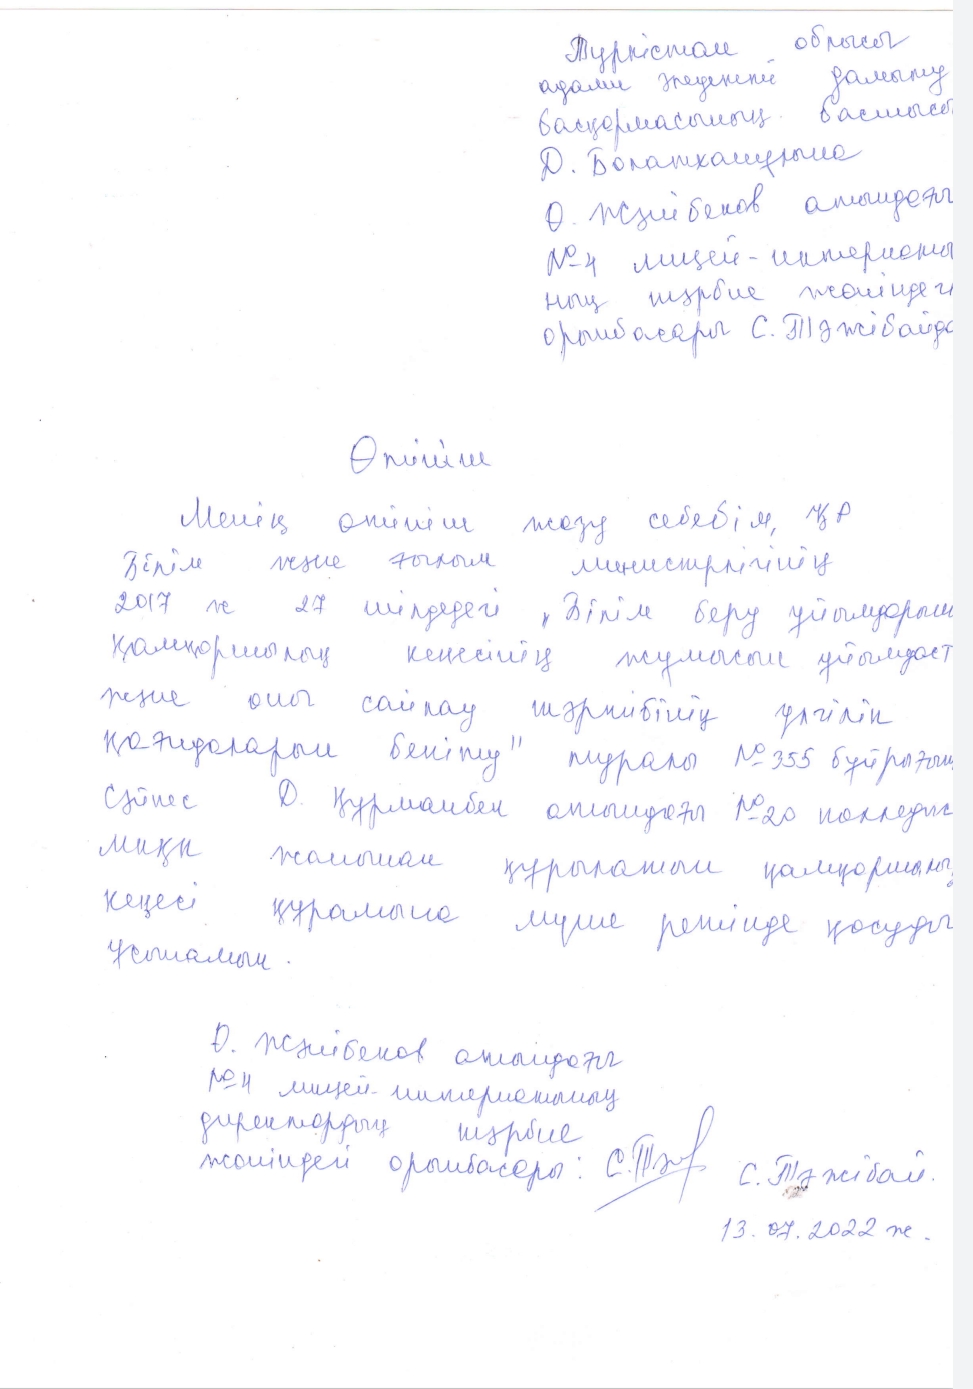 Түркістан облысы
адами әлеуетті дамыту
басқармасының басшысы
Д. Болатханұлына
Ө. Жәнібеков атындағы
№4 лицей-интернаты
ның тәрбие жөніндегі
орынбасары С. Тәжібайда
Өтініш
Менің өтініш жазу себебім, ҚР
Білім және ғылым министрлігінің
2017 ж 27 шілдедегі „Білім беру ұйымдарын
Қамқоршылық кеңесінің жұмысын ұйымдаст
және оны сайлау тәртібінің үлгілік
қағидаларын бекіту" туралы №355 бұйрығын
сәйкес Д. Құрманбек атындағы №20 колледж
МКҚК жанынан құрылатын қамқоршылы
кеңесі құрамына мүше ретінде қосуды
ұсынамын.
Ө. Жәнібеков атындағы
№4 лицей-интернатының
директордың тәрбие
жөніндегі орынбасары: С.Тәж С. Тәжібай.
13.07.2022 ж.